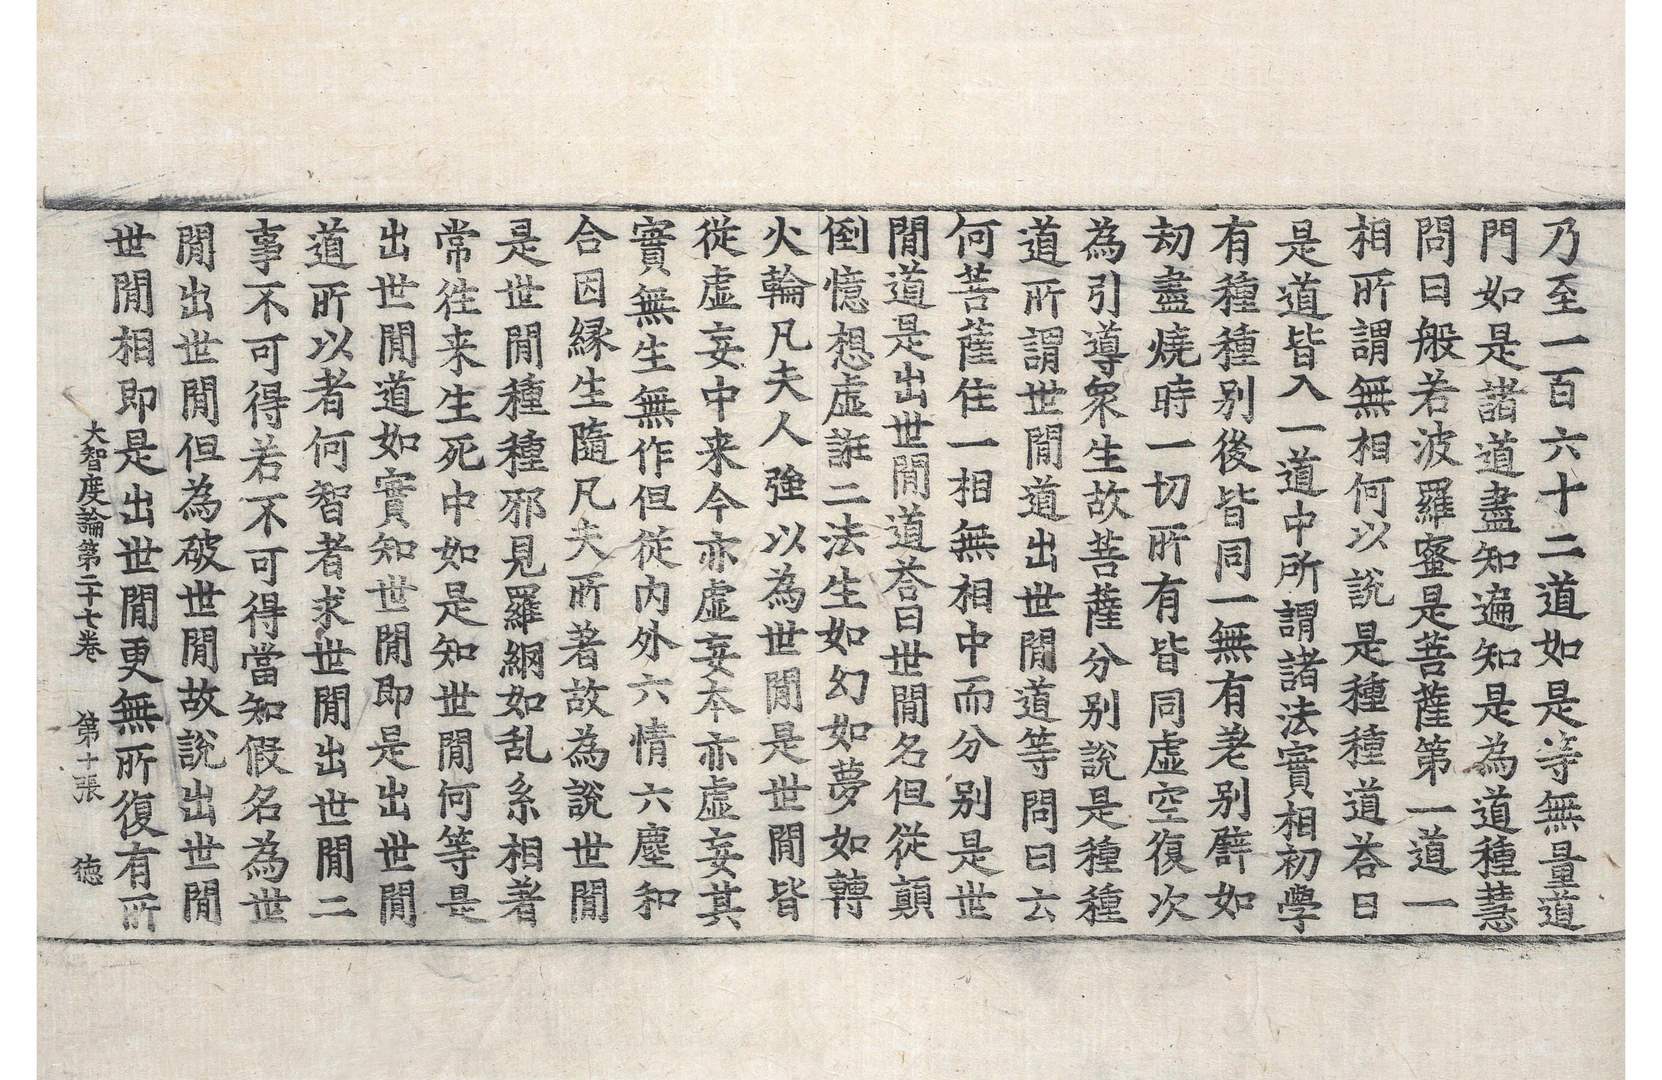 乃至一百六十二道如是等無量道
門如是諸道盡知遍知是為道種慧
問曰般若波羅蜜是菩薩第一道一
相所謂無相何以說是種種道荅曰
是道皆入一道中所謂諸法實相初學
有種種別後皆同一無有差別譬如
劫盡燒時一切所有皆同虛空復次
為引導衆生故菩薩分別說是種種
道所謂世間道出世間道等問曰云
何菩薩住一相無相中而分別是世
間道是出世間道荅曰世間名但從顛
倒憶想虛誑二法生如幻如夢如轉
火輪凡夫人強以為世間是世間皆
從虛妄中来今亦虛妄本亦虛妄其
實無生無作但從內外六情六塵和
合因緣生隨凡夫所著故為說世間
是世間種種邪見羅網如乱糸相著
常往来生死中如是知世間何等是
出世間道如實知世間即是出世間
道所以者何智者求世間出世間二
事不可得若不可得當知假名為世
間出世間但為破世間故說出世間
世間相即是出世間更無所復有所
大智度論第二十七卷 第十張 德